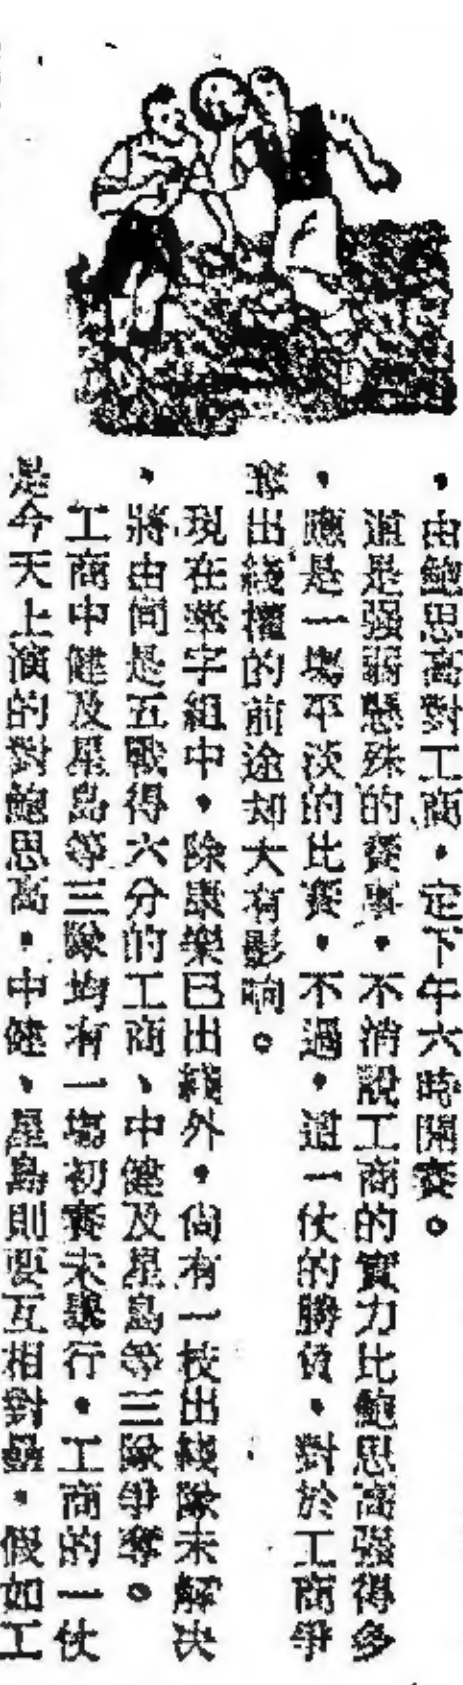 ，由鮑思高對工商，定下午六時開賽。
這是强弱懸殊的賽事，不消說工商的實力比鮑思高强得多
，應是一塲平淡的比賽，不過，這一仗的勝負，對於工商爭
奪出綫權的前途却大有影响。
現在樂字組中，除康樂已出綫外，尙有一枝出綫隊未解决
，將由同是五戰得六分的工商、中健及星島等三隊爭奪。
工商中健及星島等三隊均有一塲初賽未舉行，工商的一仗
是今天上演的對鮑思高，中健、星島則要互相對壘，假如工